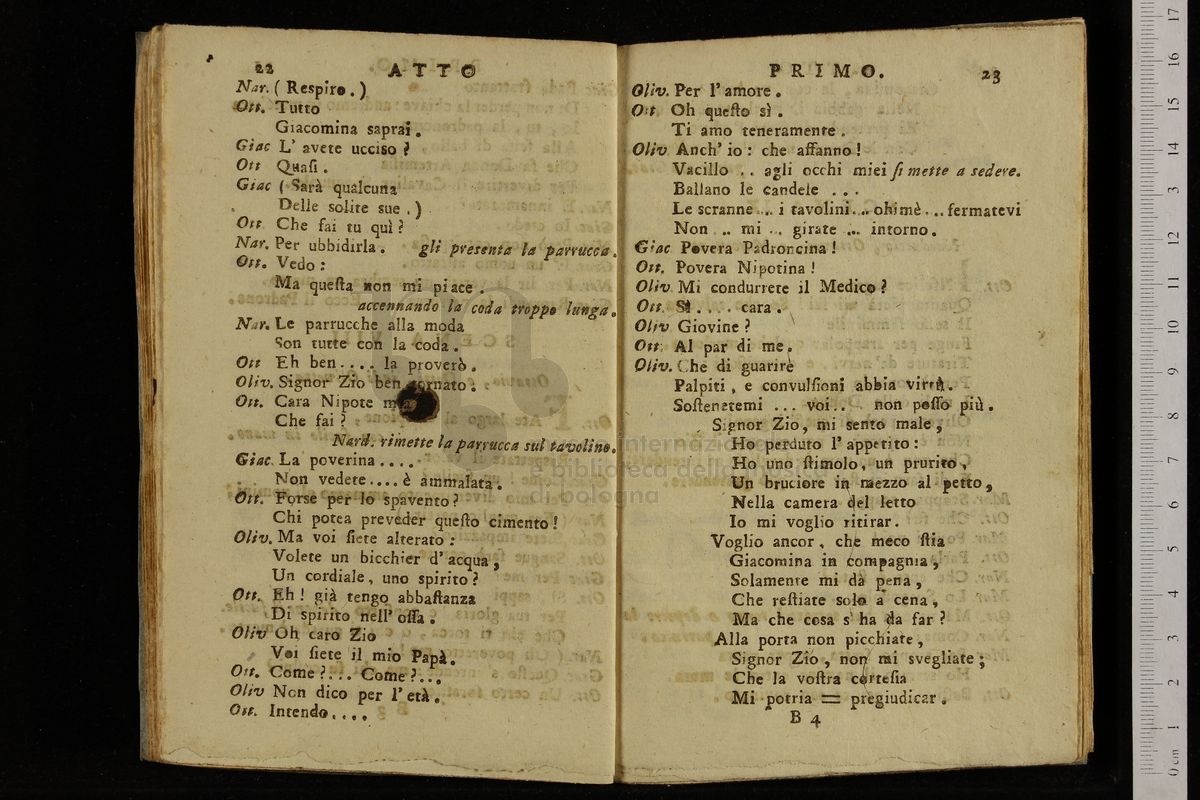 22 ATTO
Nar. ( Respiro. )
Ott. Tutto
Giacomina saprai.
Giac L' avete ucciso ?
Ott Quaſi.
Giac ( Sarà qualcuna
Delle solite sue . )
Ott Che fai tu quì ?
Nar. Per ubbidirla. gli presenta la parrucca.
Ott. Vedo :
Ma queſta non mi piace .
accennando la coda troppo lunga.
Nar. Le parrucche alla moda
Son tutte con la coda .
Ott Eh ben .... la proverò.
Oliv. Signor Zio ben tornato .
Ott. Cara Nipote
Che fai ?
Nard. rimette la parrucca sul tavolino.
Giac. La poverina ....
Non vedete .... è ammalata.
Ott. Forse per lo spavento ?
Chi potea preveder queſto cimento !
Oliv. Ma voi ſiete alterato :
Volete un bicchier d' acqua,
Un cordiale, uno spirito ?
Ott. Eh ! già tengo abbaſtanza
Di spirito nell' oſſa .
Oliv Oh caro Zio
Voi ſiete il mio Papà.
Ott. Come ?... Come ?...
Oliv Non dico per l' età.
Ott. Intendo....
PRIMO. 23
Oliv. Per l' amore .
Ott Oh queſto sì .
Ti amo teneramente .
Oliv Anch' io : che affanno !
Vacillo .. agli occhi miei ſi mette a sedere.
Ballano le candele ...
Le scranne ... i tavolini ... ohimè ... fermatevi
Non .. mi .. girate ... intorno.
Giac Povera Padroncina !
Ott. Povera Nipotina !
Oliv Mi condurrete il Medico ?
Ott Sì .... cara .
Oliv Giovine ?
Ott. Al par di me.
Oliv. Che di guarire
Palpiti, e convulſioni abbia virtù.
Soſtenetemi ... voi.. non poſſo più .
Signor Zio, mi sento male,
Ho perduto l' appetito :
Ho uno ſtimolo, un prurito,
Un bruciore in mezzo al petto,
Nella camera del letto
Io mi voglio ritirar.
Voglio ancor, che meco ſtia
Giacomina in compagnia,
Solamente mi dà pena,
Che reſtiate solo a cena,
Ma che cosa s' ha da far ?
Alla porta non picchiate,
Signor Zio, non mi svegliate ;
Che la voſtra corteſia
Mi potria = pregiudicar .
B 4